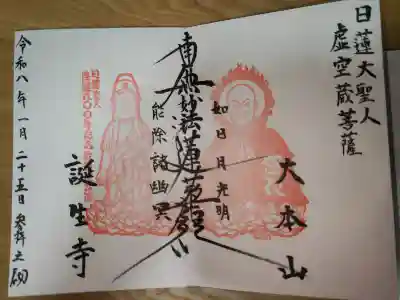 日蓮大聖人
虚空蔵菩薩
大本山
如日月光明
南無妙法蓮華経
能除諸幽冥
誕生寺
令和八年一月二十五日 参拝之砌